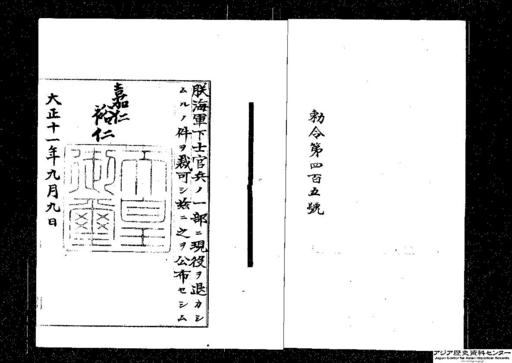 勅令第四百五號
朕海軍下士官兵ノ一部ニ現役ヲ退カシ
ムルノ件ヲ裁可シ茲ニ之ヲ公布セシム
嘉仁
裕仁
天皇御璽
大正十一年九月九日
アジア歴史資料センター
Japan Center for Asian Historical Records